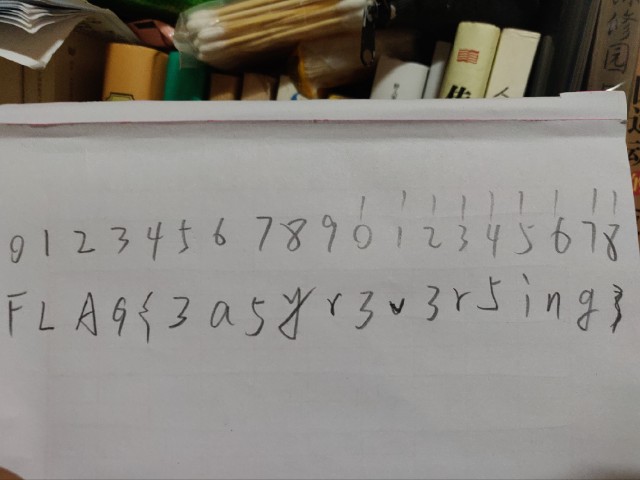 修园
1 1 1 1 1 1 1 1 1
0 1 2 3 4 5 6 7 8 9 0 1 2 3 4 5 6 7 8
F L A G { 3 a 5 y r 3 v 3 r 5 i n g }